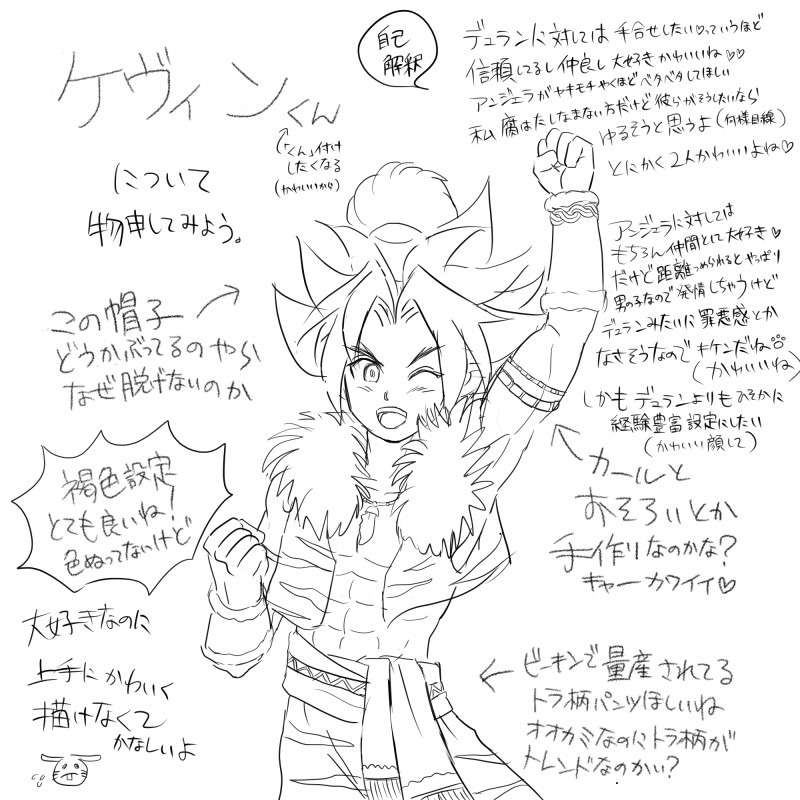 ケヴィンくん
↑
(「くん」付け
したくなる
(かわいいから)
について
物申してみよう。
自己
解釈
デュランに対しては 手合せしたい♡っていうほど
信頼してるし仲良し 大好き かわいいね♡♡
アンジェラがヤキモチやくほどベタベタしてほしい
私 腐はたしなまない方だけど 彼らがそうしたいなら
ゆるそうと思うよ(何様目線)
とにかく2人かわいいよね♡
アンジェラに対しては
もちろん仲間として大好き♡
だけど距離つめられるとやっぱり
男の子なので発情しちゃうけど
デュランみたいに罪悪感とか
なさそうなので キケンだね
(かわいいね)
しかも デュランよりもひそかに
経験豊富設定にしたい
(かわいい顔して)
この帽子
どうかぶってるのやら
なぜ脱げないのか
褐色設定
とても良いね!
色ぬってないけど
カールと
おそろいとか
手作りなのかな?
キャーカワイイ♡
大好きなのに
上手にかわいく
描けなくて
かなしいよ
← ビーキンで量産されてる
トラ柄パンツほしいね
オオカミなのにトラ柄が
トレンドなのかい?